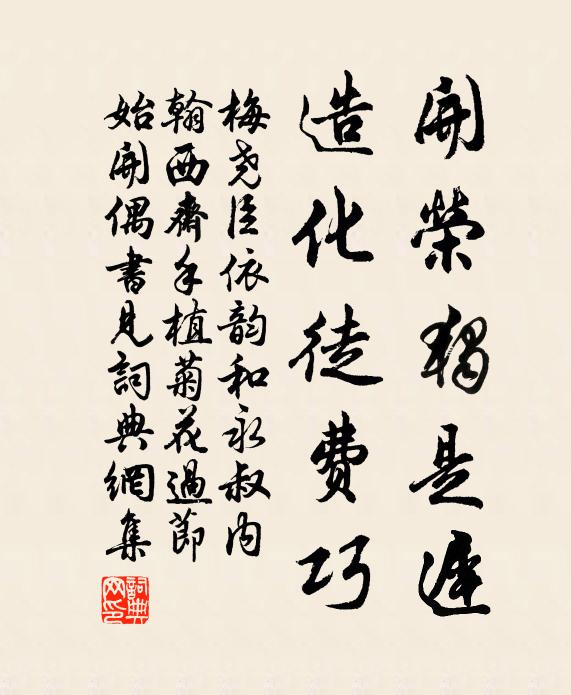 開榮獨是遲
造化徒費巧
梅堯臣依韵和永叔内
翰西齋手植菊花過節
始開偶書見詞典網集
詞典网印